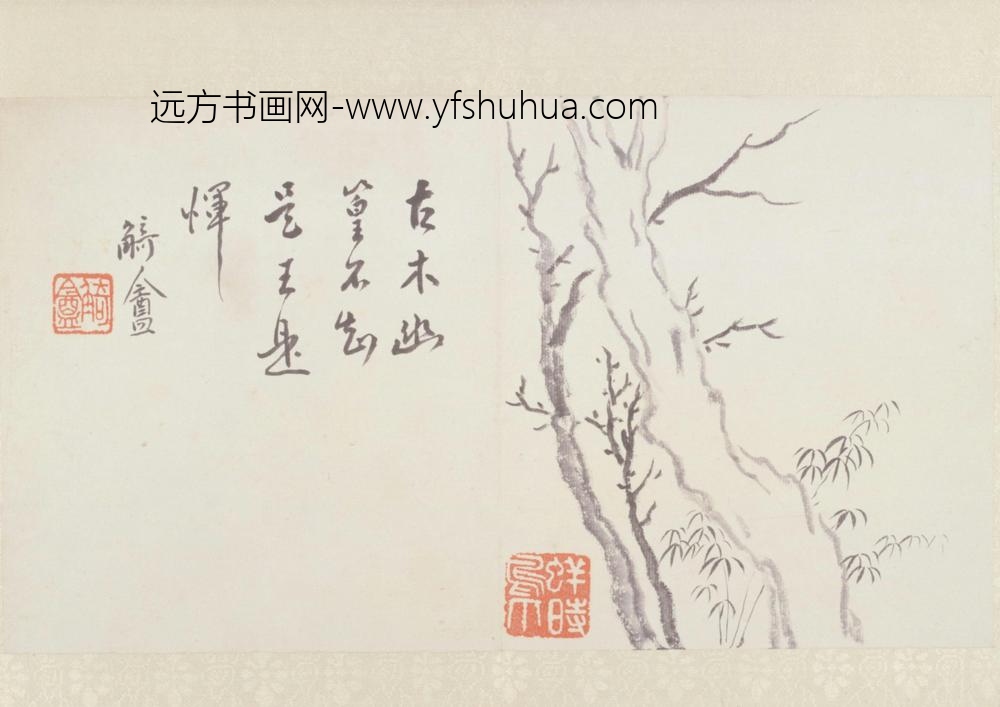 远方书画网-www.yfshuhua.com
古木幽
篁不知
是王是
惲
觭盦
觭盦